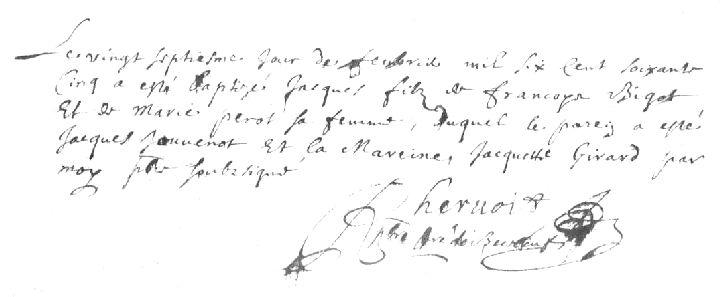 Le vingt septiesme jour de febvrié mil six cent soixante
Cinq a esté baptisé Jacques filz de francoys Bigot
Et de Marie perot sa femme, duquel le parein a esté
Jacques Jouvenot Et la Mareine, Jacquette Girard par
moy pbre soubsigné
phre